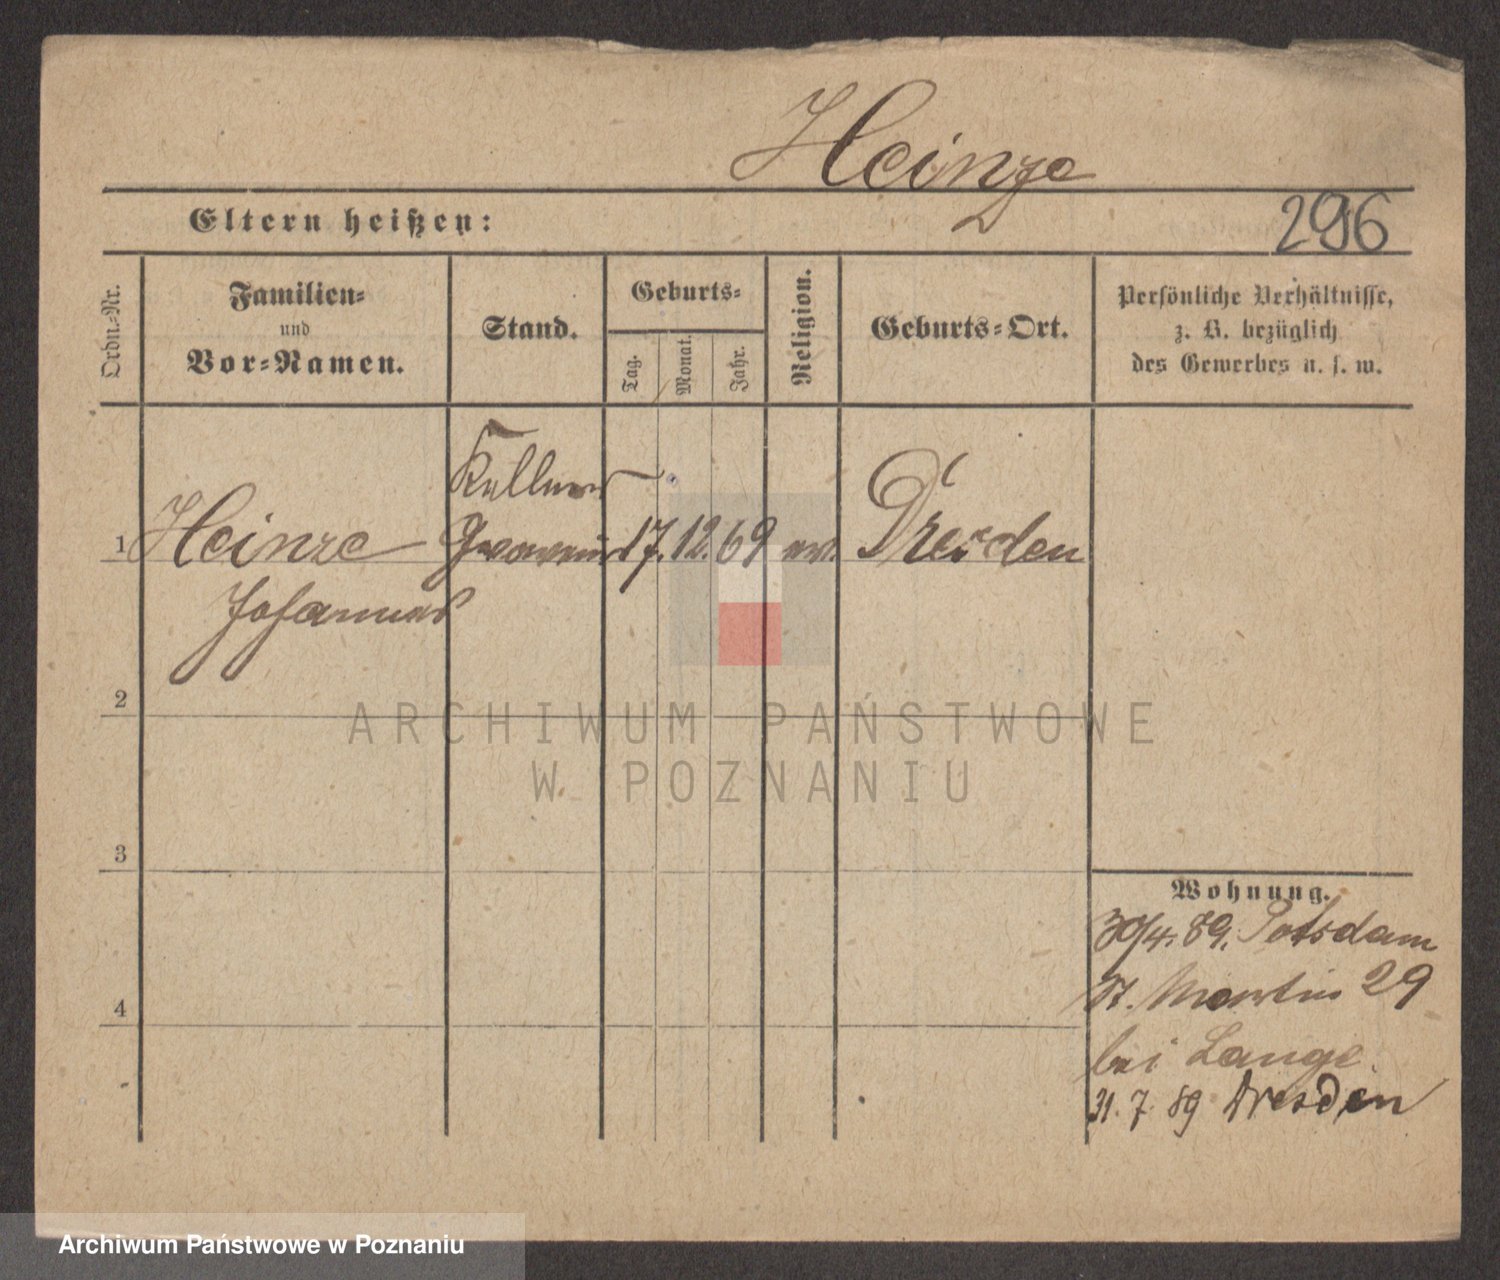 Heinze
Eltern heißen:
296
Ordn.=Nr.
Familien=
und
Vor=Namen.
Stand.
Geburts=
Tag.
Monat.
Jahr.
Religion.
Geburts=Ort.
Persönliche Verhältnisse,
z. B. bezüglich
des Gewerbes u. s. w.
Kellner
1 Heinze 17. 12. 69 ev. Dresden
Johannes
2
ARCHIWUM PAŃSTWOWE
W POZNANIU
3
Wohnung.
30/4. 89. Potsdam
St. Martin 29
4
bei Lange.
31. 7. 89 Dresden
Archiwum Państwowe w Poznaniu